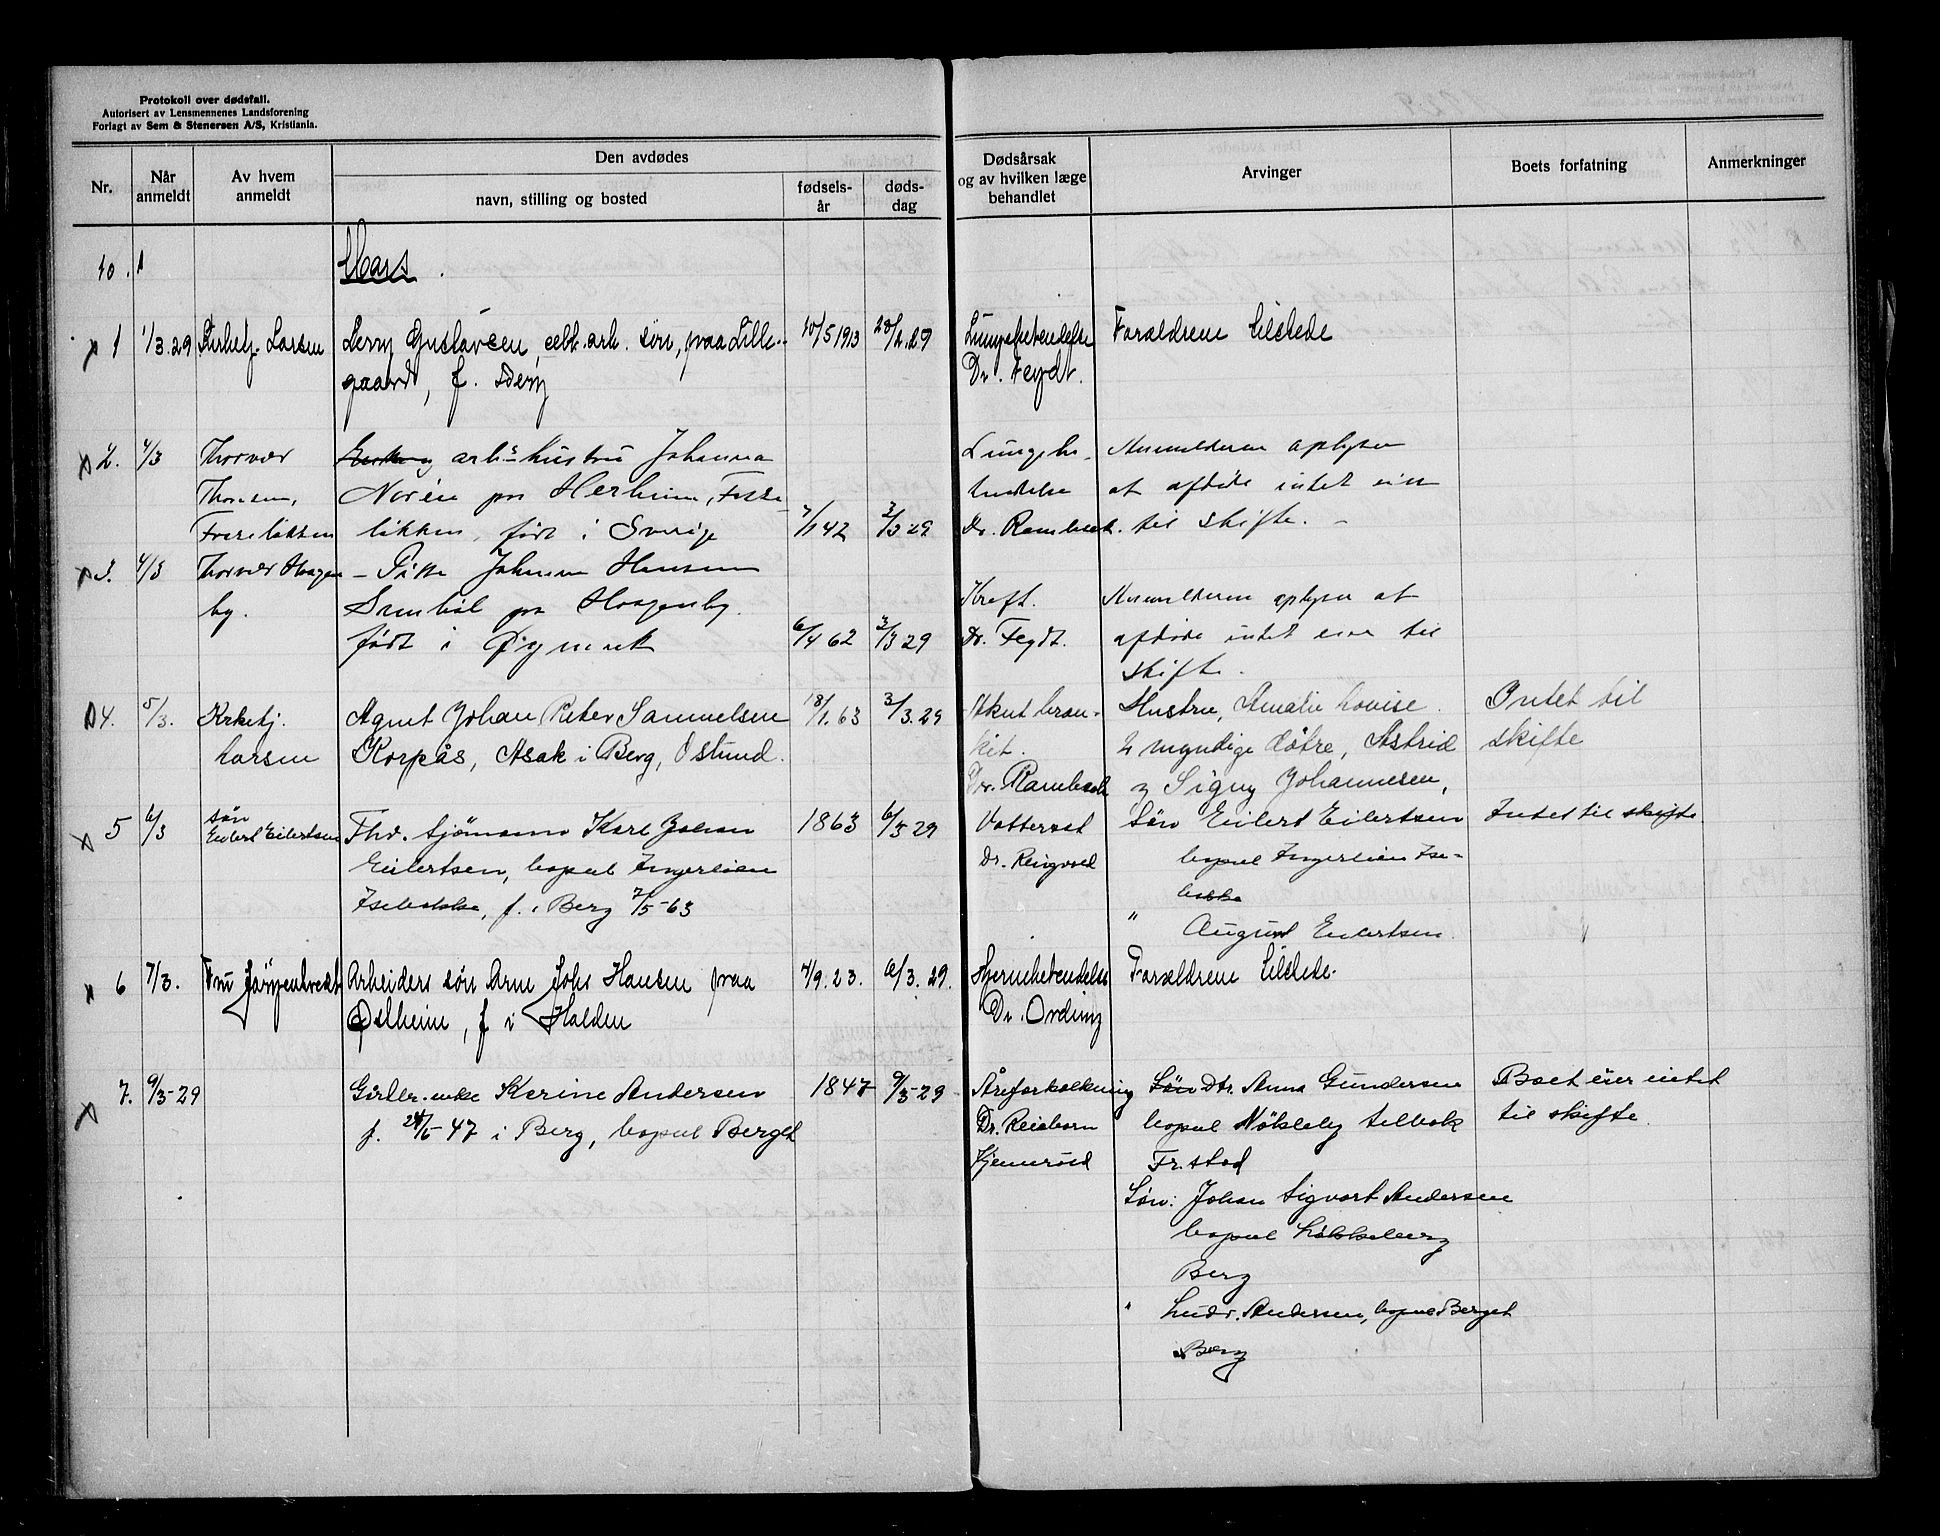 Protokoll over dødsfall.
Autorisert av Lensmennenes Landsforening
Forlagt av Sem & Stenersen A/S, Kristiania.
Nr.
Når anmeldt
Av hvem anmeldt
Den avdødes
navn, stilling og bosted
fødsels-år
døds-dag
Dødsårsak og av hvilken læge behandlet
Arvinger
Boets forfatning
Anmerkninger
10. 1 Mars.
x 1 1/3.29 Kirketj. Larsen
Gustavsen, arb. søn, paa Lille-
gaard, f.
10/5 1913
Lungebetendelse
Dr. Feydt.
Forældrene tilstede
x 2. 4/3 Thorvor
Thorsen,
arb.s hustru Johanna
Norén på Herheim,
løkken, født i Sverige
7/1 42 3/3 29
Lungebe-
tendelse
Dr. Rambæck.
Anmelderen oplyser
at afdøde intet eier
til skifte. -
x 3. 4/3 Thorvor Haagen
by.
Johanna Hansen
på Haagenby.
født i Øymark
6/4 62 3/3 29
Kreft.
Dr. Feydt.
Anmelderen oplyser at
afdøde intet eier til
skifte.
4. 5/3. Kirketj.
Larsen
Agnet Johan Peter Samuelsen
Korpås, Asak i Berg, Østund.
18/1.63 3/3.29
Akut bron-
kit.
Dr. Rambæck
Hustru, Amalie Lovise.
2 myndige døtre, Astrid
og Signy Johannesen,
Intet til
skifte
x 5 6/3 søn
Eilert Eilertsen
Fhv. sjømann Karl Johan
Eilertsen, bopæl Ingerløien
Isebakke, f. i Berg 7/5-63
1863 6/3 29
Vattersot
Dr. Ringvold
Søn Eilert Eilertsen
bopæl Ingerløien Ise-
bakke
" August Eilertsen.
Intet til skifte
x 6 7/3. Fru
Arbeiders søn Arne Johs Hansen paa
Østheim, f i Halden
4/9.23. 6/3.29.
Hjernebetendelse
Dr. Ording
Forældrene tilstede.
x 7. 9/3-29
Gårdbr. enke Karine Andersen
f. 24/5-47 i Berg, bopæl Berget
1847 9/3-29
Åreforkalkning
Dr. Reieborn
Søn Dtr. Anna Gundersen
bopæl Nøkleby Selbak
Fr.stad
Søn: Johan Sigvart Andersen
bopæl Løkkeberg
Berg
" Ludv. Andersen, bopæl Berget
Berg
Boet eier intet
til skifte.